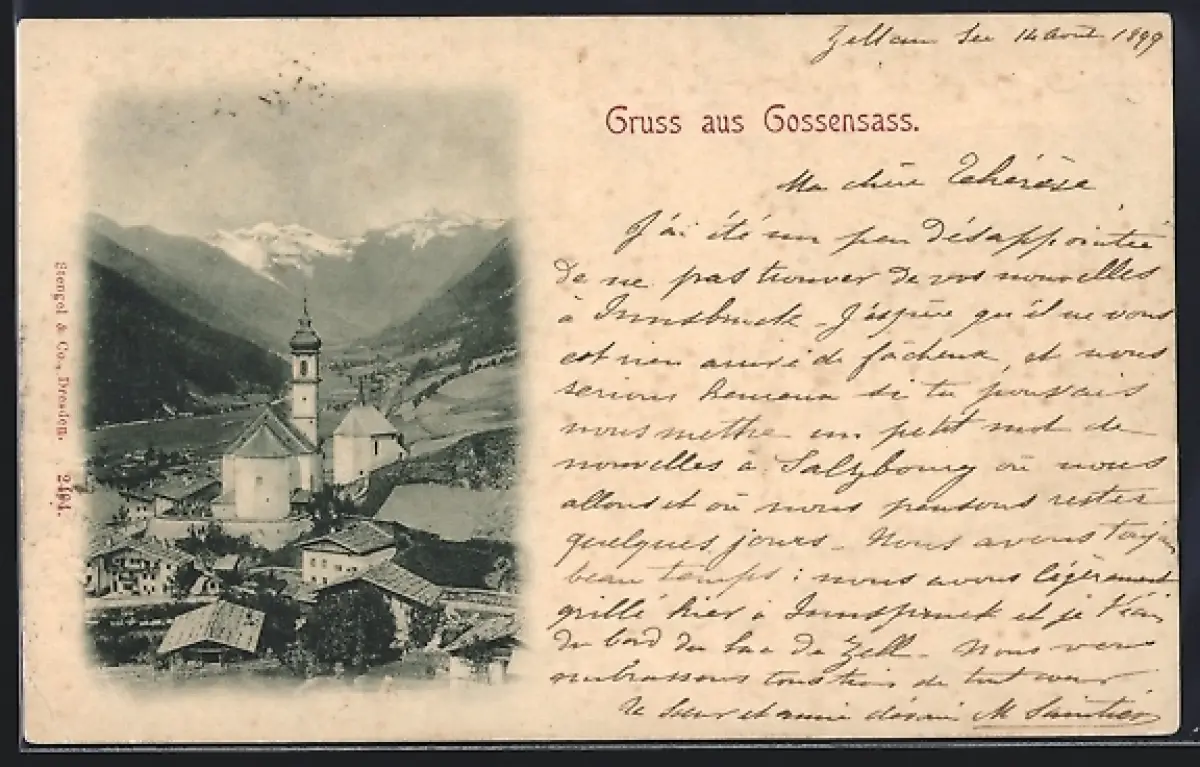 Zell am See 14 août 1899
Gruss aus Gossensass.
Ma chère Thérèse
J'ai été un peu désappointée
de ne pas trouver de vos nouvelles
à Innsbruck. J'espère qu'il ne vous
est rien arrivé de fâcheux et nous
serions heureux si tu pouvais
nous mettre un petit mot de
nouvelles à Salzbourg où nous
allons et où nous pensons rester
quelques jours. Nous avons toujours
beau temps : nous avons légèrement
grillé hier à Innspruck et je t'écris
du bord du lac de Zell. Nous vous
embrassons tous trois de tout cœur
ta sœur et amie M.
Stengel & Co., Dresden. 2494.